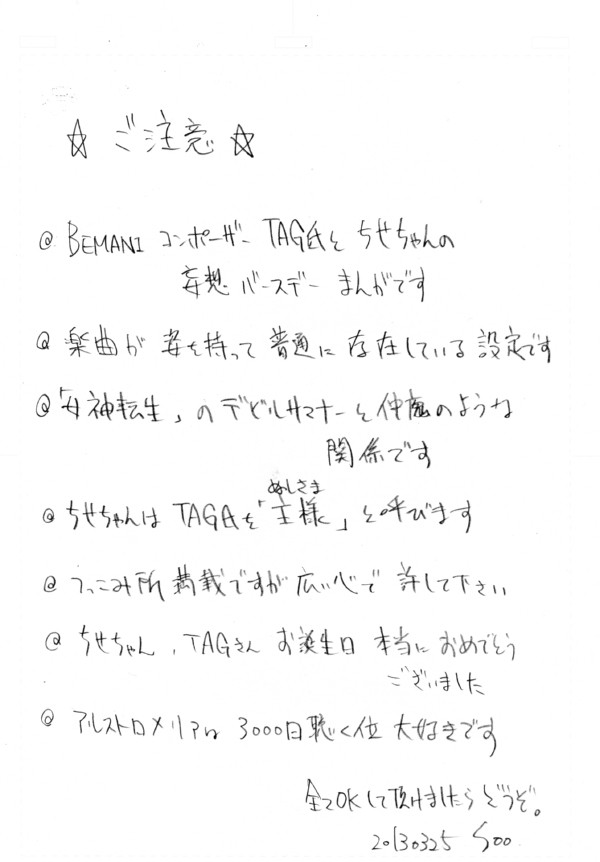 ☆ ご注意 ☆
@ BEMANI コンポーザー TAG氏と ちせちゃんの
妄想 バースデー まんがです
@ 楽曲が 姿を持って 普通に 存在している 設定です
@「女神転生」のデビルサマナーと仲魔のような
関係です
ぬしさま
@ ちせちゃんは TAG氏を「主様」と呼びます
@ つっこみ所 満載ですが 広い心で 許して下さい
@ ちせちゃん、TAGさん お誕生日 本当に おめでとう
ございました
@ アルストロメリアは 3000回聴く位 大好きです
全てOKして頂けましたら どうぞ。
20130325 Soo